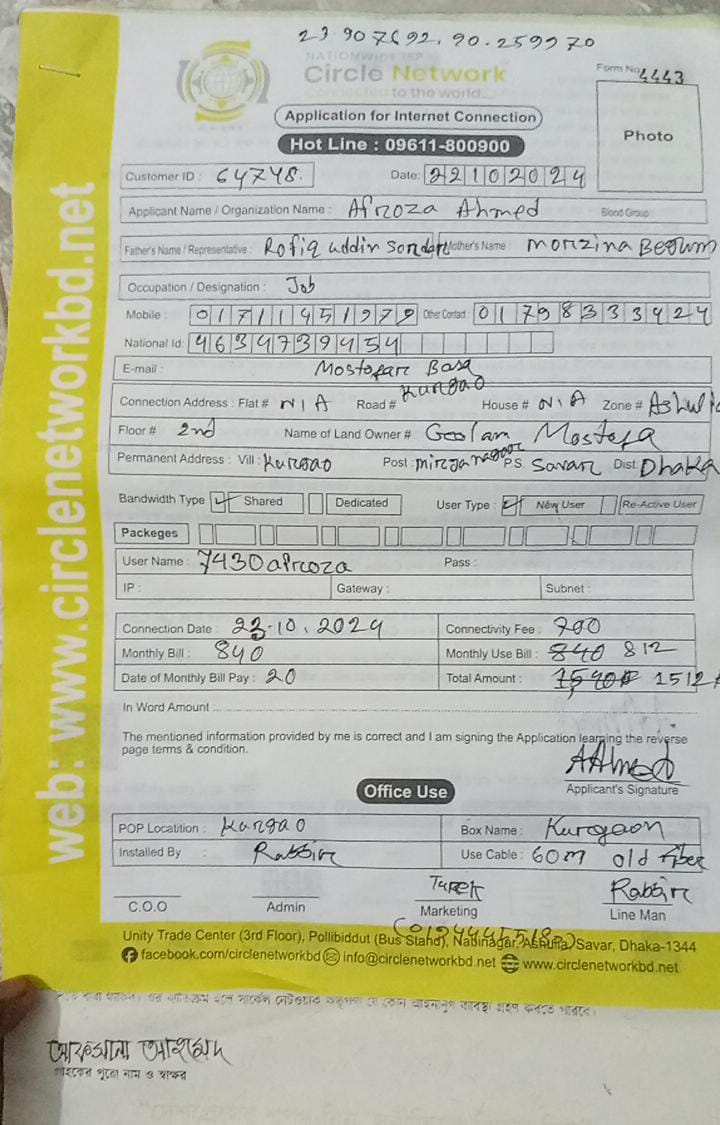 23.907692, 90.259970
NATIONWIDE ISP
Circle Network
Connected to the world...
Form No. 4443
Application for Internet Connection
Photo
Hot Line : 09611-800900
Customer ID : 64748. Date: 22102024
Applicant Name / Organization Name : Afroza Ahmed Blood Group
Father's Name / Representative : Rofiq uddin Sordar Mother's Name : Morzina Begum
Occupation / Designation : Job
Mobile : 01711451979 Other Contact : 01798333424
National Id: 4634739454
E-mail :
Mostofar Basa
Connection Address : Flat # N/A Road # Kurgao House # N/A Zone # Ashulia
Floor # 2nd Name of Land Owner # Goolam Mostofa
Permanent Address : Vill : Kurgao Post : mirzanagor P.S. Savar Dist: Dhaka
Bandwidth Type Shared Dedicated User Type : New User Re-Active User
Packeges
User Name : 7430afroza Pass :
IP : Gateway : Subnet :
Connection Date : 23.10.2024 Connectivity Fee : 700
Monthly Bill : 840 Monthly Use Bill : 840 812
Date of Monthly Bill Pay : 20 Total Amount : 1540 1512
In Word Amount :
The mentioned information provided by me is correct and I am signing the Application learning the reverse
page terms & condition.
AAhmed
Applicant's Signature
Office Use
POP Locatition : Kurgao Box Name : Kurgaon
Installed By : Rabbir Use Cable : 60m old fiber
Tarek Rabbir
C.O.O Admin Marketing Line Man
Unity Trade Center (3rd Floor), Pollibiddut (Bus Stand), Nabinagar, Ashulia, Savar, Dhaka-1344
facebook.com/circlenetworkbd info@circlenetworkbd.net www.circlenetworkbd.net
web: www.circlenetworkbd.net
সার্কেল নেটওয়ার্ক কর্তৃপক্ষ যে কোন আইনানুগ ব্যবস্থা গ্রহণ করতে পারবে।
আফসানা আহমেদ
গ্রাহকের পুরো নাম ও স্বাক্ষর